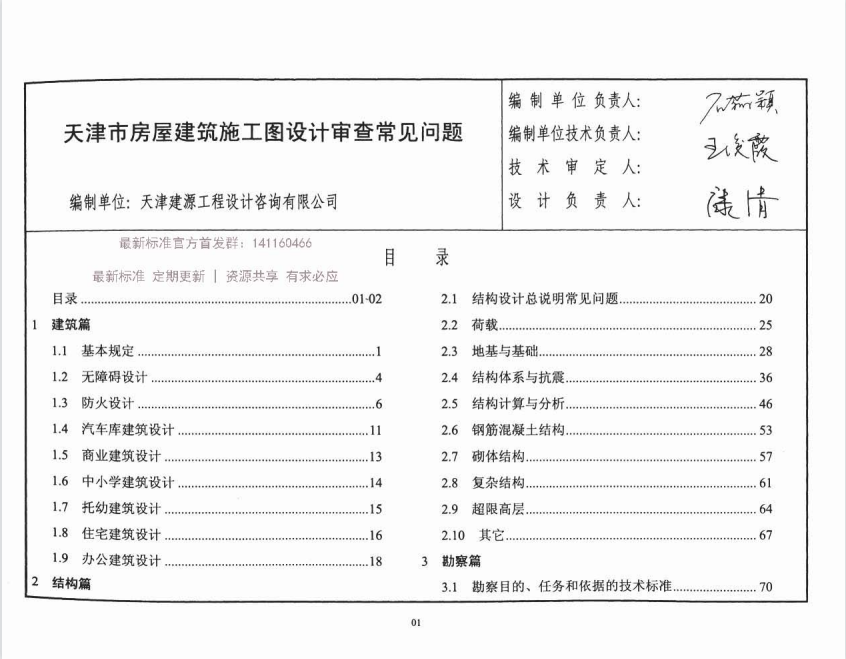 天津市房屋建筑施工图设计审查常见问题
编制单位: 天津建源工程设计咨询有限公司
编制单位负责人:
编制单位技术负责人:
技术审定人:
设计负责人:
王俊霞
最新标准官方首发群：141160466
最新标准 定期更新 | 资源共享 有求必应
目 录
目录....................01-02
1 建筑篇
1.1 基本规定....................1
1.2 无障碍设计....................4
1.3 防火设计....................6
1.4 汽车库建筑设计....................11
1.5 商业建筑设计....................13
1.6 中小学建筑设计....................14
1.7 托幼建筑设计....................15
1.8 住宅建筑设计....................16
1.9 办公建筑设计....................18
2 结构篇
2.1 结构设计总说明常见问题....................20
2.2 荷载....................25
2.3 地基与基础....................28
2.4 结构体系与抗震....................36
2.5 结构计算与分析....................46
2.6 钢筋混凝土结构....................53
2.7 砌体结构....................57
2.8 复杂结构....................61
2.9 超限高层....................64
2.10 其它....................67
3 勘察篇
3.1 勘察目的、任务和依据的技术标准....................70
01